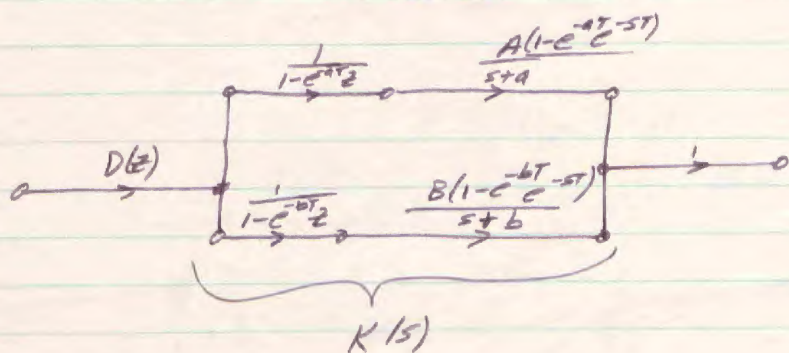 1/(1-e^{-aT}z)
A(1-e^{-aT}e^{-sT})/(s+a)
D(z)
1/(1-e^{-bT}z)
B(1-e^{-bT}e^{-sT})/(s+b)
1
K(s)